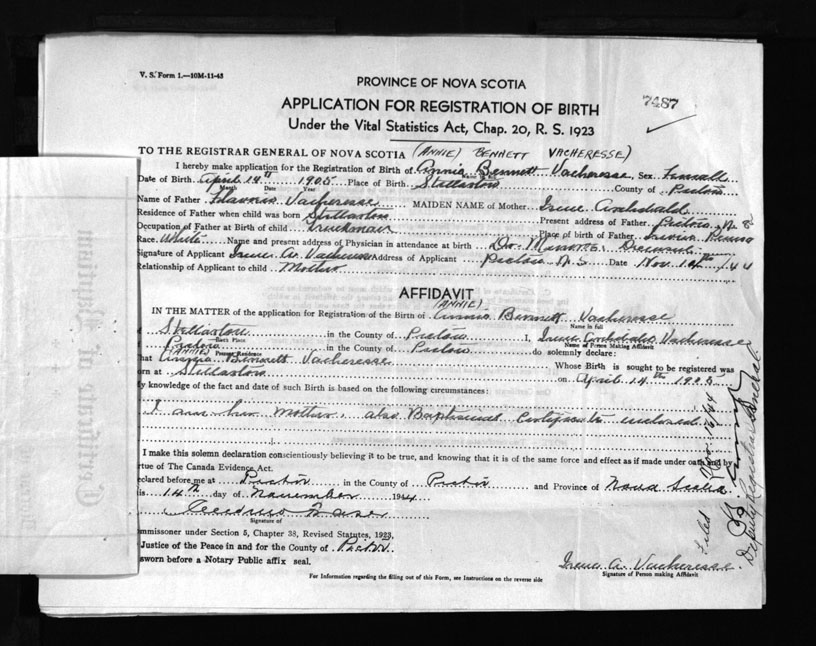 V. S. Form 1.—10M-11-43
PROVINCE OF NOVA SCOTIA
7487
APPLICATION FOR REGISTRATION OF BIRTH
Under the Vital Statistics Act, Chap. 20, R. S. 1923
TO THE REGISTRAR GENERAL OF NOVA SCOTIA (ANNIE) BENNETT VACHERESSE)
I hereby make application for the Registration of Birth of Annie Bennett Vacheresse, Sex Female
Date of Birth April 14th 1905 Place of Birth Stellarton County of Pictou
Month Date Year
Name of Father Vacheresse MAIDEN NAME of Mother Irene Archibald
Residence of Father when child was born Stellarton Present address of Father Pictou N.S
Occupation of Father at Birth of child Truckman Place of birth of Father
Race White Name and present address of Physician in attendance at birth Dr.
Signature of Applicant Irene A. Vacheresse Address of Applicant Pictou N.S Date Nov. 14th 44
Relationship of Applicant to child Mother
AFFIDAVIT
(ANNIE)
IN THE MATTER of the application for Registration of the Birth of Annie Bennett Vacheresse
Name in full
Stellarton in the County of Pictou I, Irene Archibald Vacheresse
Birth Place Name of Person Making Affidavit
Pictou in the County of Pictou do solemnly declare:
(ANNIE) Present Residence
hat Annie Bennett Vacheresse Whose Birth is sought to be registered was
orn at Stellarton on April 14th 1905
y knowledge of the fact and date of such Birth is based on the following circumstances:
I am her Mother, also Baptismal Certificate inclosed
I make this solemn declaration conscientiously believing it to be true, and knowing that it is of the same force and effect as if made under oath and by
rtue of The Canada Evidence Act.
eclared before me at Pictou in the County of Pictou and Province of Nova Scotia
is 14th day of November 1944
Signature of
mmissioner under Section 5, Chapter 38, Revised Statutes, 1923,
Justice of the Peace in and for the County of Pictou
sworn before a Notary Public affix seal.
Irene A. Vacheresse
Signature of Person making Affidavit
For Information regarding the filling out of this Form, see Instructions on the reverse side
Filed Nov. 16/44
Deputy Registrar General
Certificate of Baptism